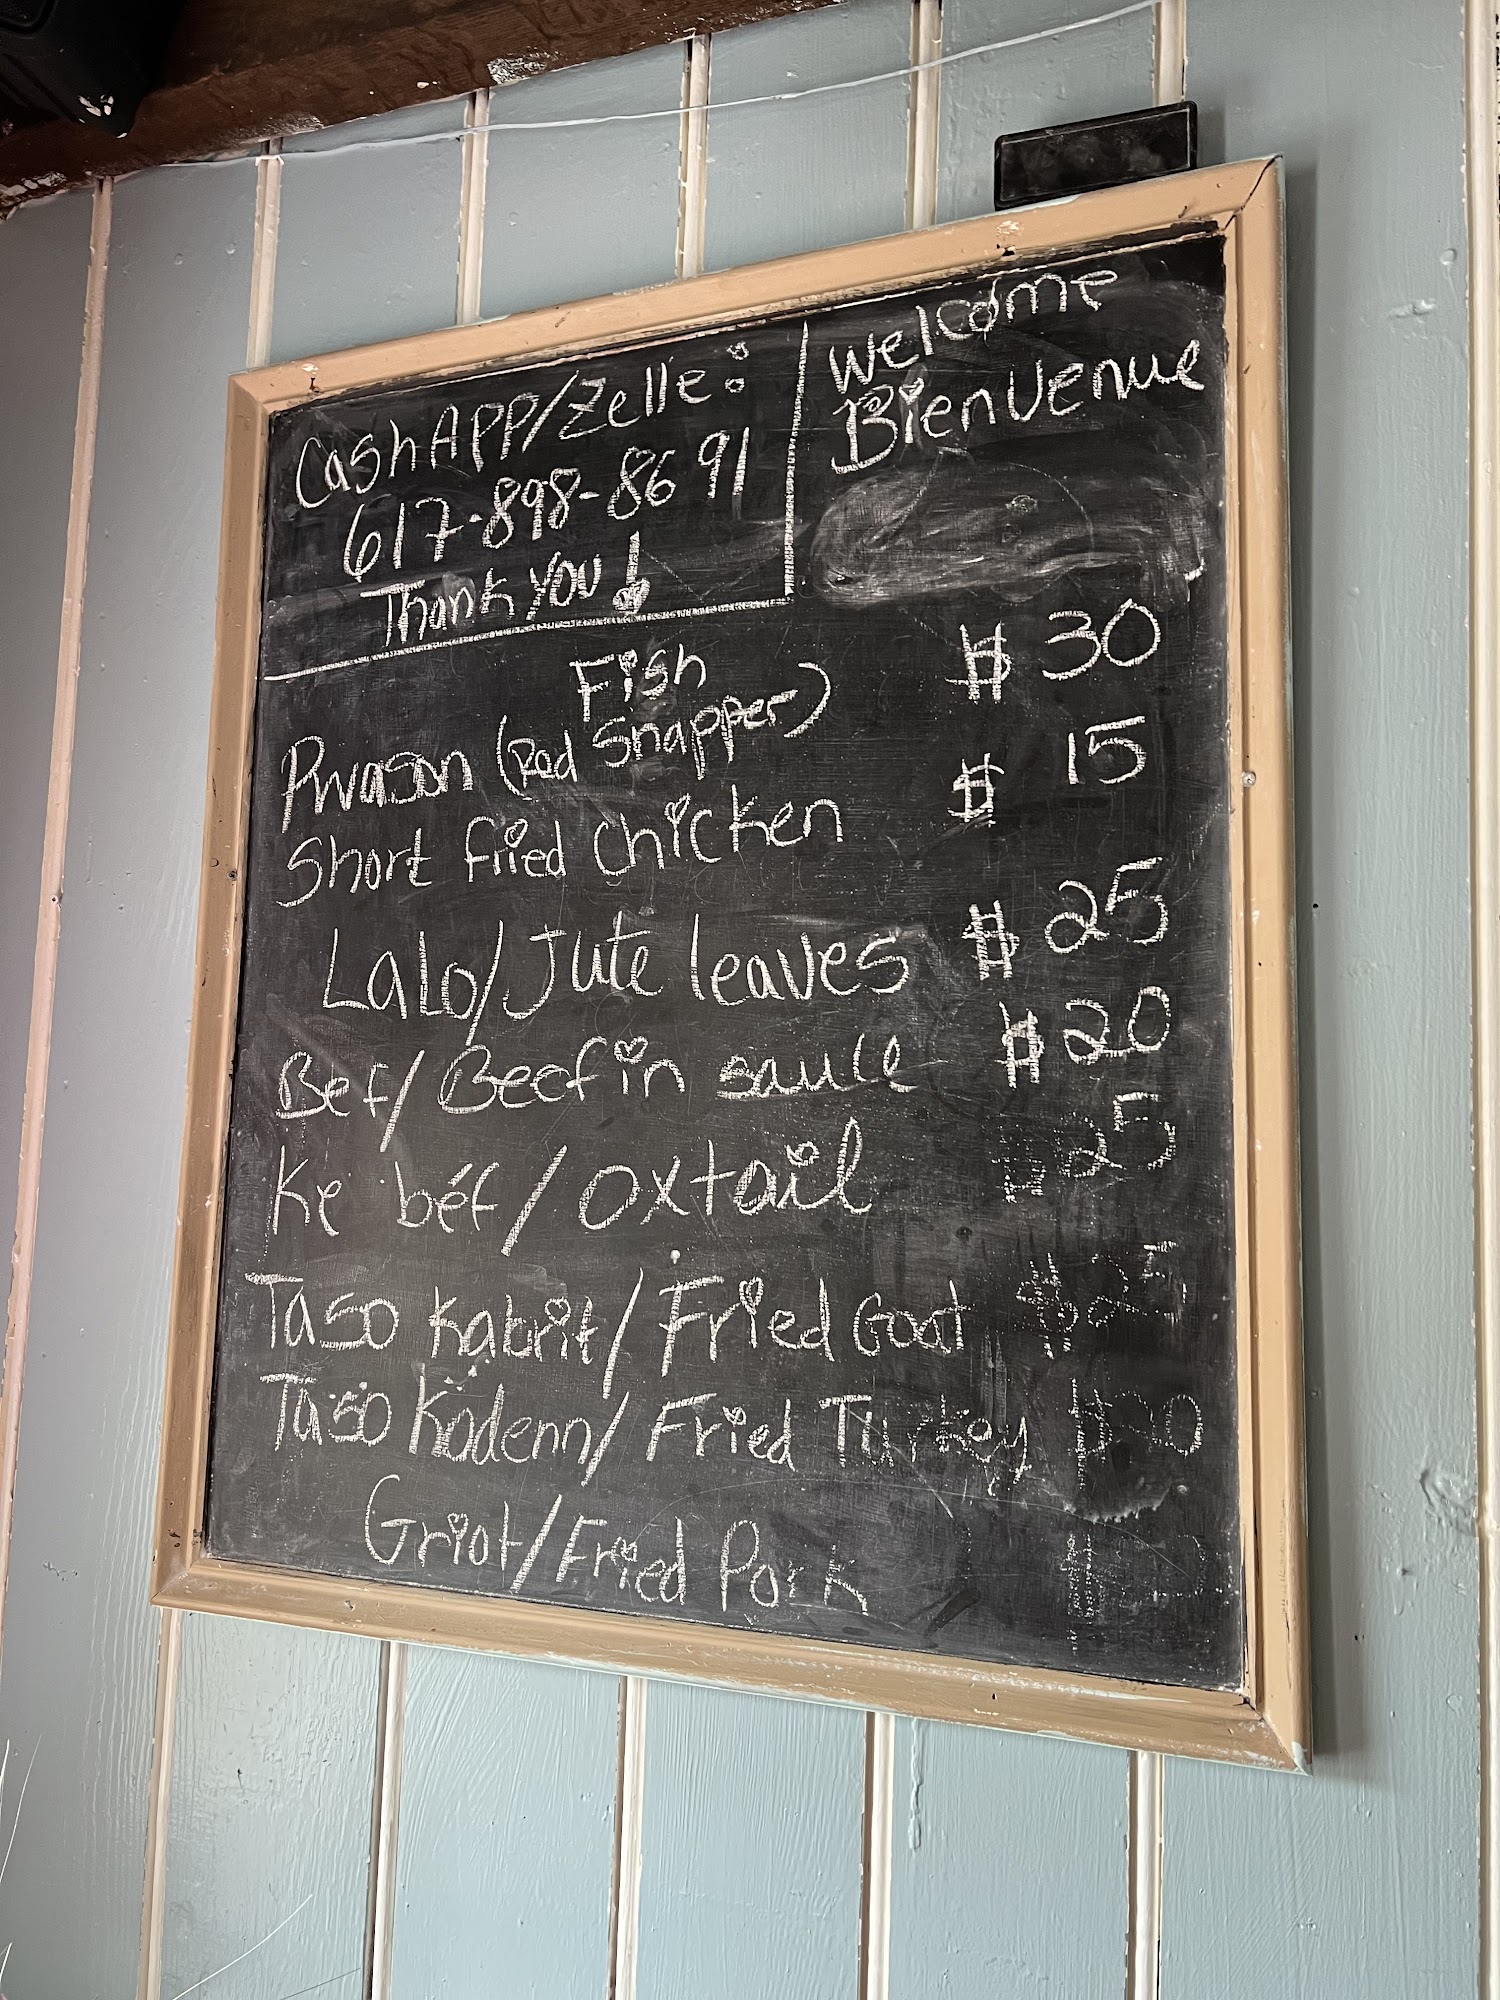 CashAPP/Zelle:
617-898-8691
Thank you!
Welcome
Bienvenue
Fish $30
Pwason (Red Snapper)
Short fried chicken $15
Lalo/Jute leaves $25
Bef/Beef in sauce $20
Ke béf/Oxtail $25
Taso Kabrit/Fried Goat $25
Taso Kodenn/Fried Turkey $20
Griot/Fried Pork $